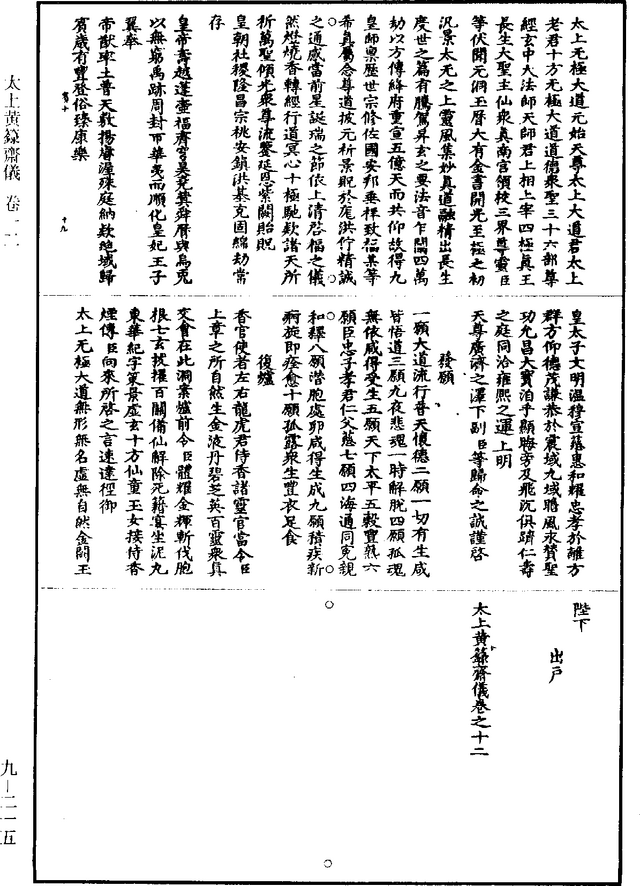 太上无極大道元始天尊太上大道君太上
老君十方无極大道道德衆聖三十六部尊
經玄中大法師天師君上相上宰四極真王
長生大聖主仙衆真南宮領校三界尊靈臣
等伏聞元洞玉曆大有金書開光至極之初
汎景太无之上靈風集妙真道融精出長生
度世之篇有騰駕昇玄之要法音乍闡四萬
劫以方傳絳府重宣五億天而共仰故得九
皇師稟歷世宗修佐國安邦垂祥致福某等
希真屬念尊道披元祈景貺於庬洪佇精誠
之通感當前星誕瑞之節依上清啓福之儀
然燈燒香轉經行道冥心十極馳欵諸天所
祈萬聖傾光衆尊流鑒延恩紫闕貽貺
皇朝社稷隆昌宗祧安鎮洪基克固綿劫常
存
皇帝壽越蓬壺福齊穹昊堯蓂舜曆與烏兎
以無窮禹跡周封帀華夷而順化皇妃王子
翼奉
帝猷率土普天敷揚睿澤殊庭納欵絶域歸
賓歲有豐登俗臻康樂
皇太子文明温穆宣蔼惠和耀忠孝於離方
羣方仰德茂謙恭於震域九域將風永贊聖
功允昌大寶洎乎顯晦旁及飛沉俱躋仁壽
之庭同洽雍熙之運上明
天尊廣濟之澤下副臣等歸命之誠謹啓
發願
一願大道流行普天懷德二願一切有生咸
皆悟道三願九夜悲魂一時解脫四願孤魂
無依咸得受生五願天下太平五穀豐熟六
願臣忠子孝君仁父慈七願四海通同寃親
和釋八願潛胞處卵咸得生成九願積疾新
痾旋即痊愈十願孤露衆生豐衣足食
復爐
香官使者左右龍虎君侍香諸靈官當令臣
上章之所自然生金液丹碧芝英百靈衆真
交會在此洞案爐前令臣體耀金輝斬伐胞
根七玄拔擢百關備仙解除死籍宴坐泥丸
東華紀字策景虛玄十方仙童玉女接侍香
煙傳臣向來所啓之言速達徑御
太上无極大道無形無名虛無自然金闕玉
陛下
出戶
太上黃籙齋儀卷之十二
太上黃籙齋儀 卷一二
九—二一五